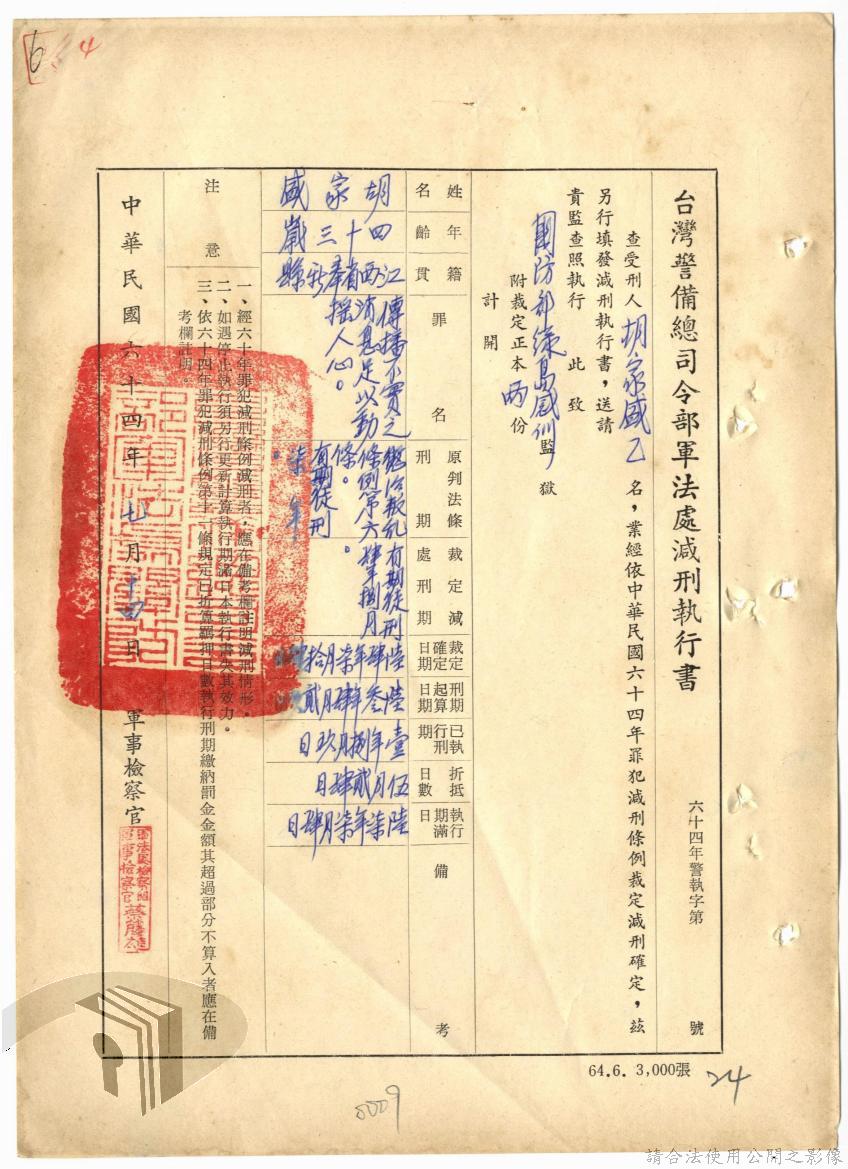 台灣警備總司令部軍法處減刑執行書
六十四年警執字第 號
查受刑人胡家盛乙名，業經依中華民國六十四年罪犯減刑條例裁定減刑確定，茲
另行填發減刑執行書，送請
貴監查照執行 此致
國防部綠島感訓監獄
附裁定正本兩份
計開
姓名
年齡
籍貫
罪名
原判法條
刑期
裁定減
處刑期
裁定確定日期
刑期起算日期
已執行刑期
折抵日數
執行期滿日
備考
胡家盛
四十三歲
江西省奉新縣
傳播不實之
消息足以動
搖人心。
懲治叛亂
條例第六
條。
有期徒刑
柒年。
有期徒刑
肆年捌月
陸肆年柒月拾
陸叁年肆月貳
壹年捌月玖日
伍月貳肆日
陸柒年柒月肆日
注意
一、經六十年罪犯減刑條例減刑者，應在備考欄註明減刑情形。
二、如遇停止執行須另行更新計算執行期滿日本執行書失其效力。
三、依六十四年罪犯減刑條例第十一條規定已折算羈押日數執行刑期繳納罰金金額其超過部分不算入者應在備
考欄註明。
中華民國六十四年七月十四日
軍事檢察官
軍事檢察官蔡勝雄
64.6. 3,000張
24
0009
6
4
請合法使用公開之影像